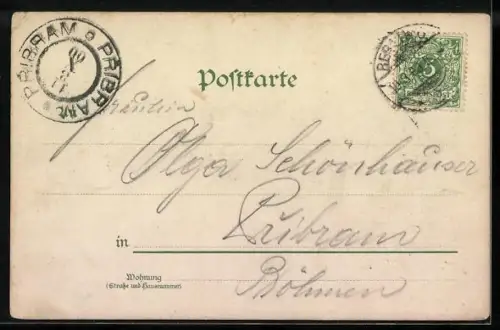 PRIBRAM PRIBRAM
Postkarte
Fräulein
Olga Schönhauser
in Pribram
Wohnung
(Straße und Hausnummer)
Böhmen